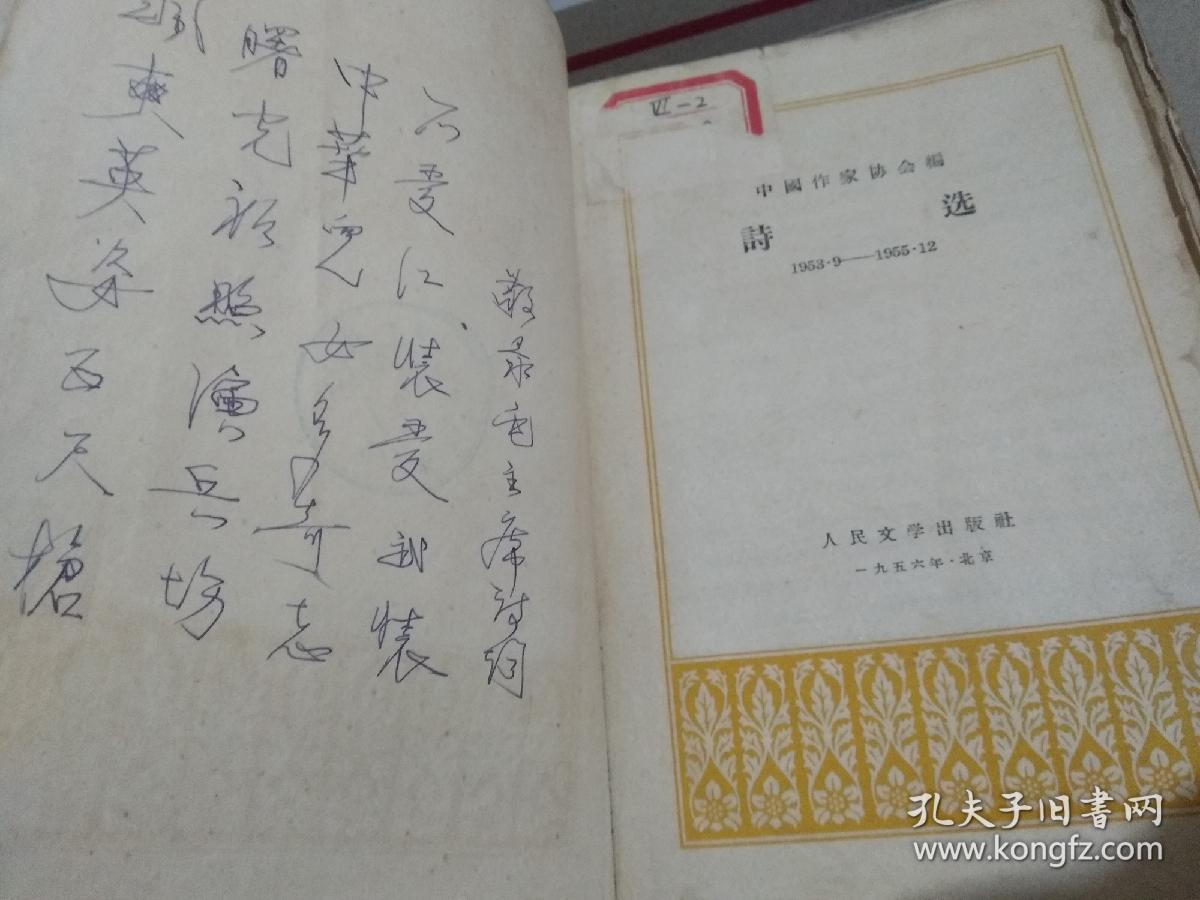 飒爽英姿五尺槍
曙光初照演兵場
中華兒女多奇志
不愛红装愛武装
敬录毛主席诗词
VI-2
中國作家协会編
詩选
1953·9——1955·12
人民文学出版社
一九五六年·北京
孔夫子旧书网
www.kongfz.com